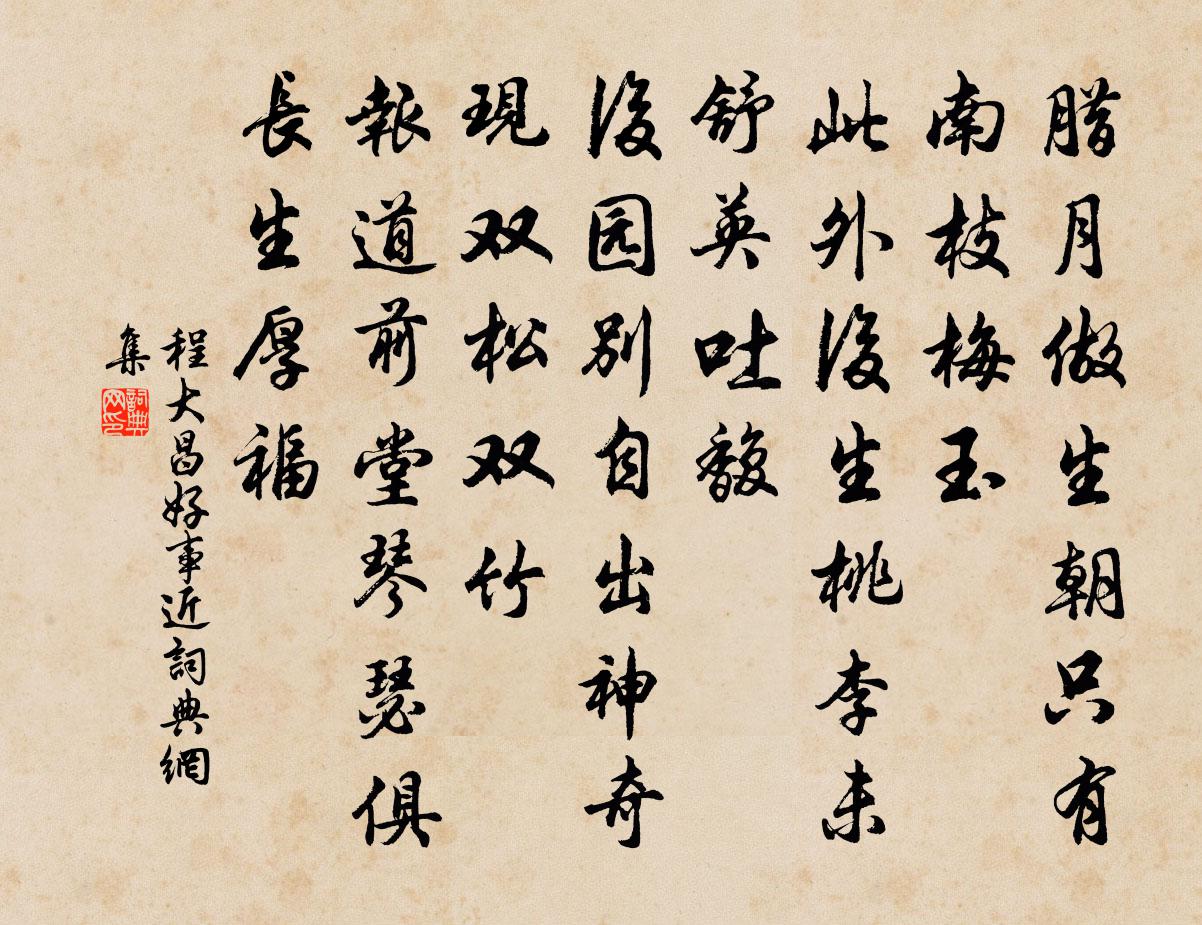 腊月做生朝只有
南枝梅玉
此外後生桃李未
舒英吐馥
後园别自出神奇
現双松双竹
報道前堂琴瑟俱
長生厚福
程大昌好事近詞典網
集
詞典
网印